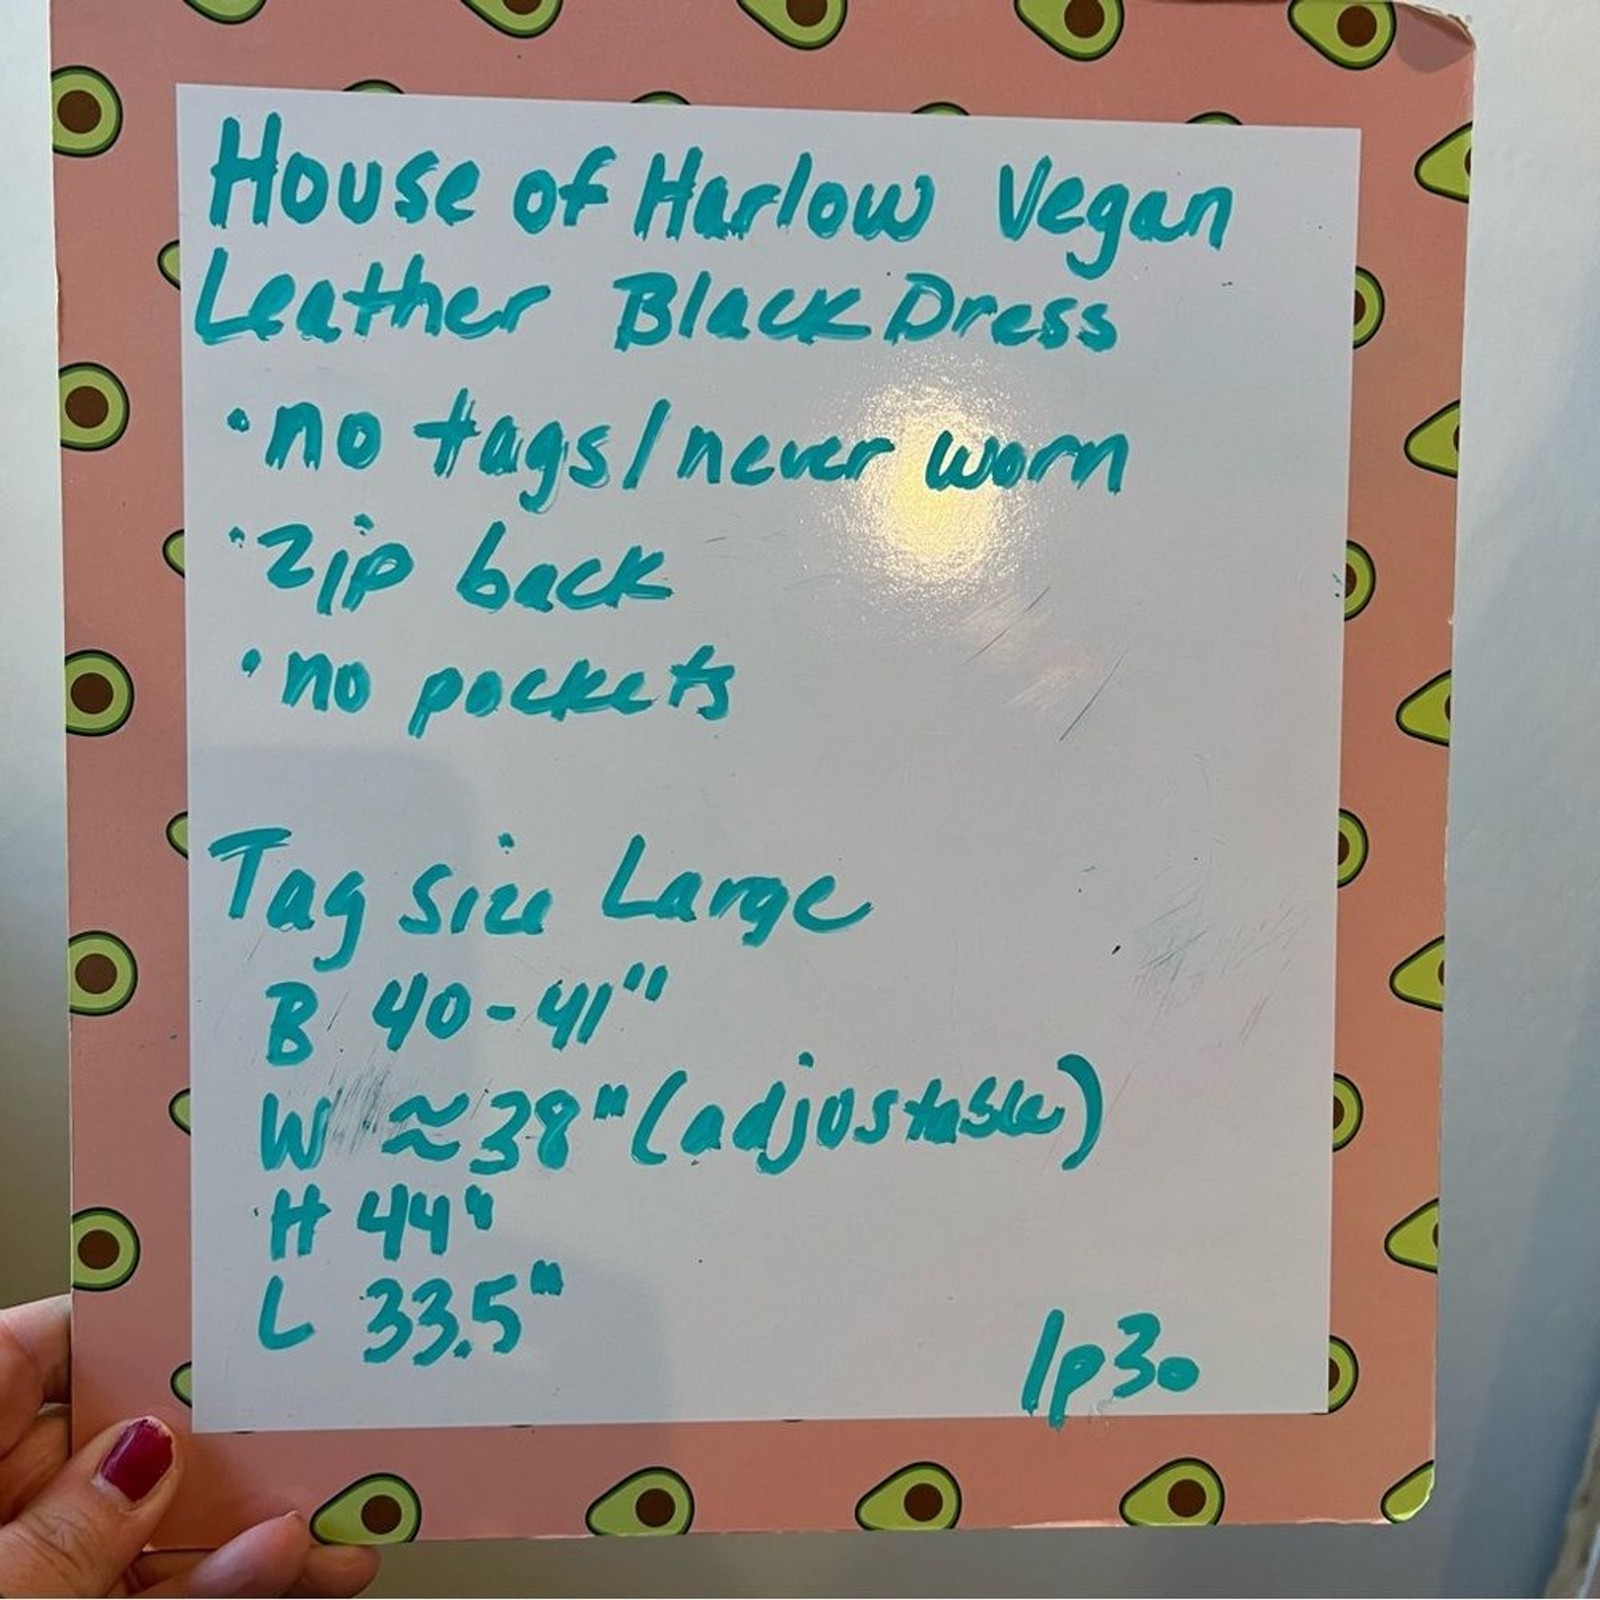 House of Harlow Vegan
Leather Black Dress
• no tags/never worn
• zip back
• no pockets
Tag size Large
B 40-41"
W ≈38" (adjustable)
H 44"
L 33.5"
1p30